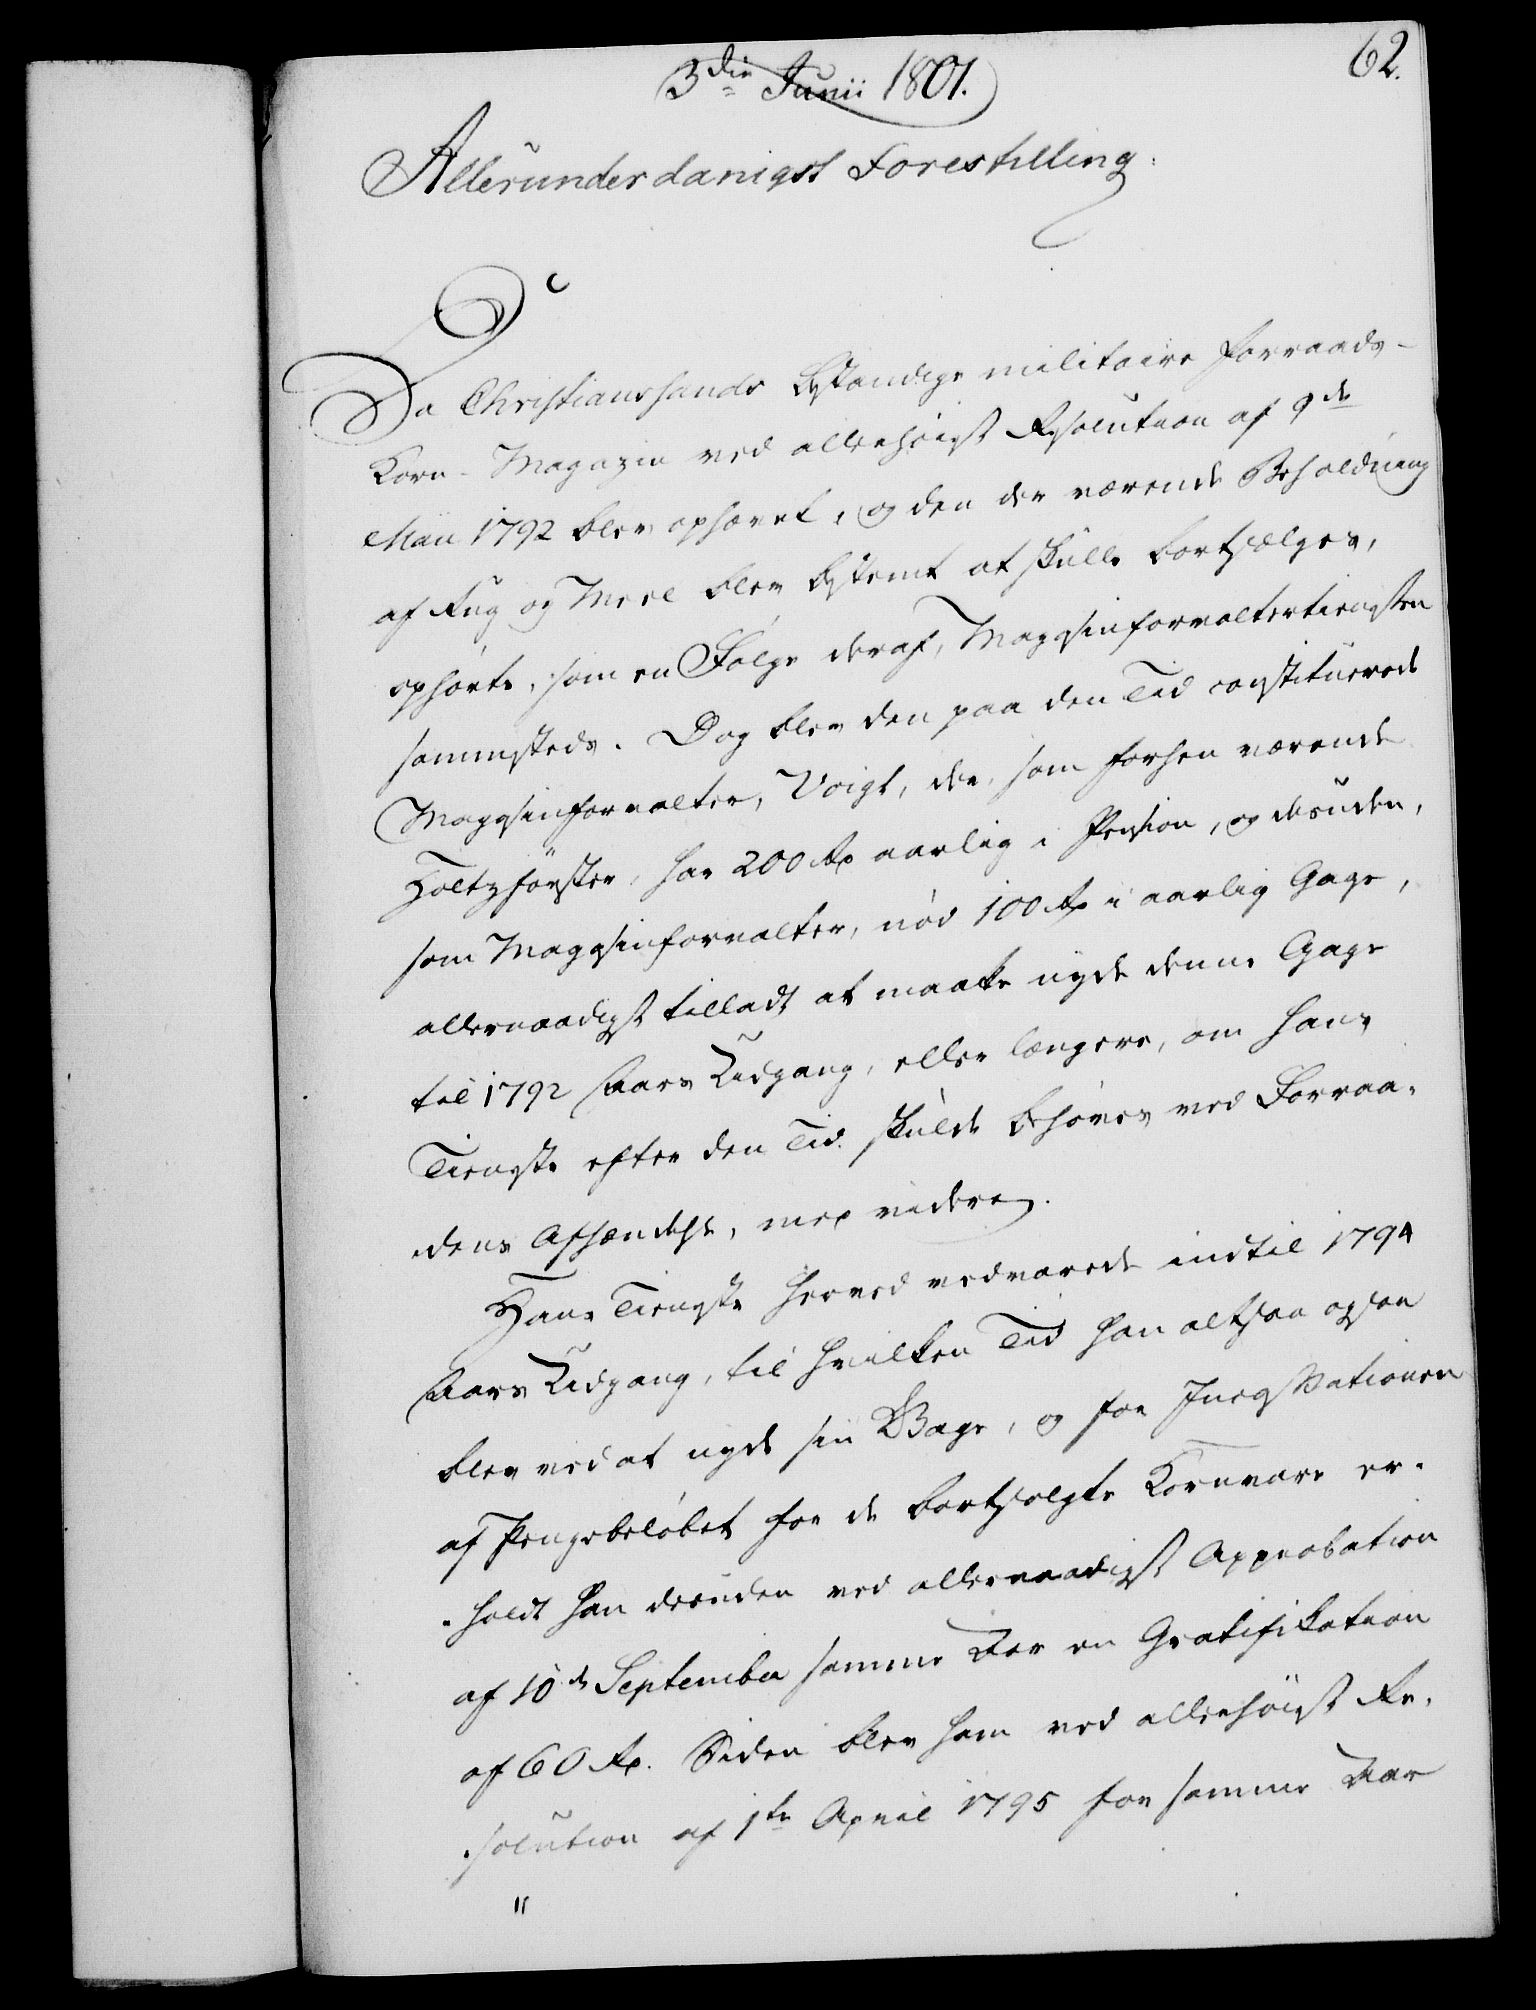 3die Junii 1801.
62.
Allerunderdanigst Forestilling.
Da Christianssands bestandige militaire Forraads-
Korn-Magazin ved allerhøiest Resolution af 9de
Maii 1792 blev ophævet, og den der værende Beholdning
af Rug og Meel blev bestemt at skulle bortsælges,
ophørte, som en Følge deraf, Magasinforvaltertienesten
sammesteds. Dog blev den paa den Tid constituerede
Magasinforvalter, Voigt, der, som forhen værende
Holtzførster, har 200 Rd aarlig i Pension, og desuden,
som Magasinforvalter, nød 100 Rd i aarlig Gage,
allernaadigst tilladt at maatte nyde denne Gage
til 1792 Aars Udgang, eller længere, om hans
Tieneste efter den Tid skulde behøves ved Forraa-
dens Afhændelse, med videre.
Hans Tieneste herved vedvarede indtil 1794
Aars Udgang, til hvilken Tid han altsaa ogsaa
blev ved at nyde sin Gage, og for Incassationen
af Pengebeløbet for de bortsolgte Kornvare er-
holdt han desuden ved allernaadigst Approbation
af 10de September samme Aar en Gratifikation
af 60 Rd. Siden blev ham ved allerhøiest Re-
solution af 1te April 1795 for samme Aar
"